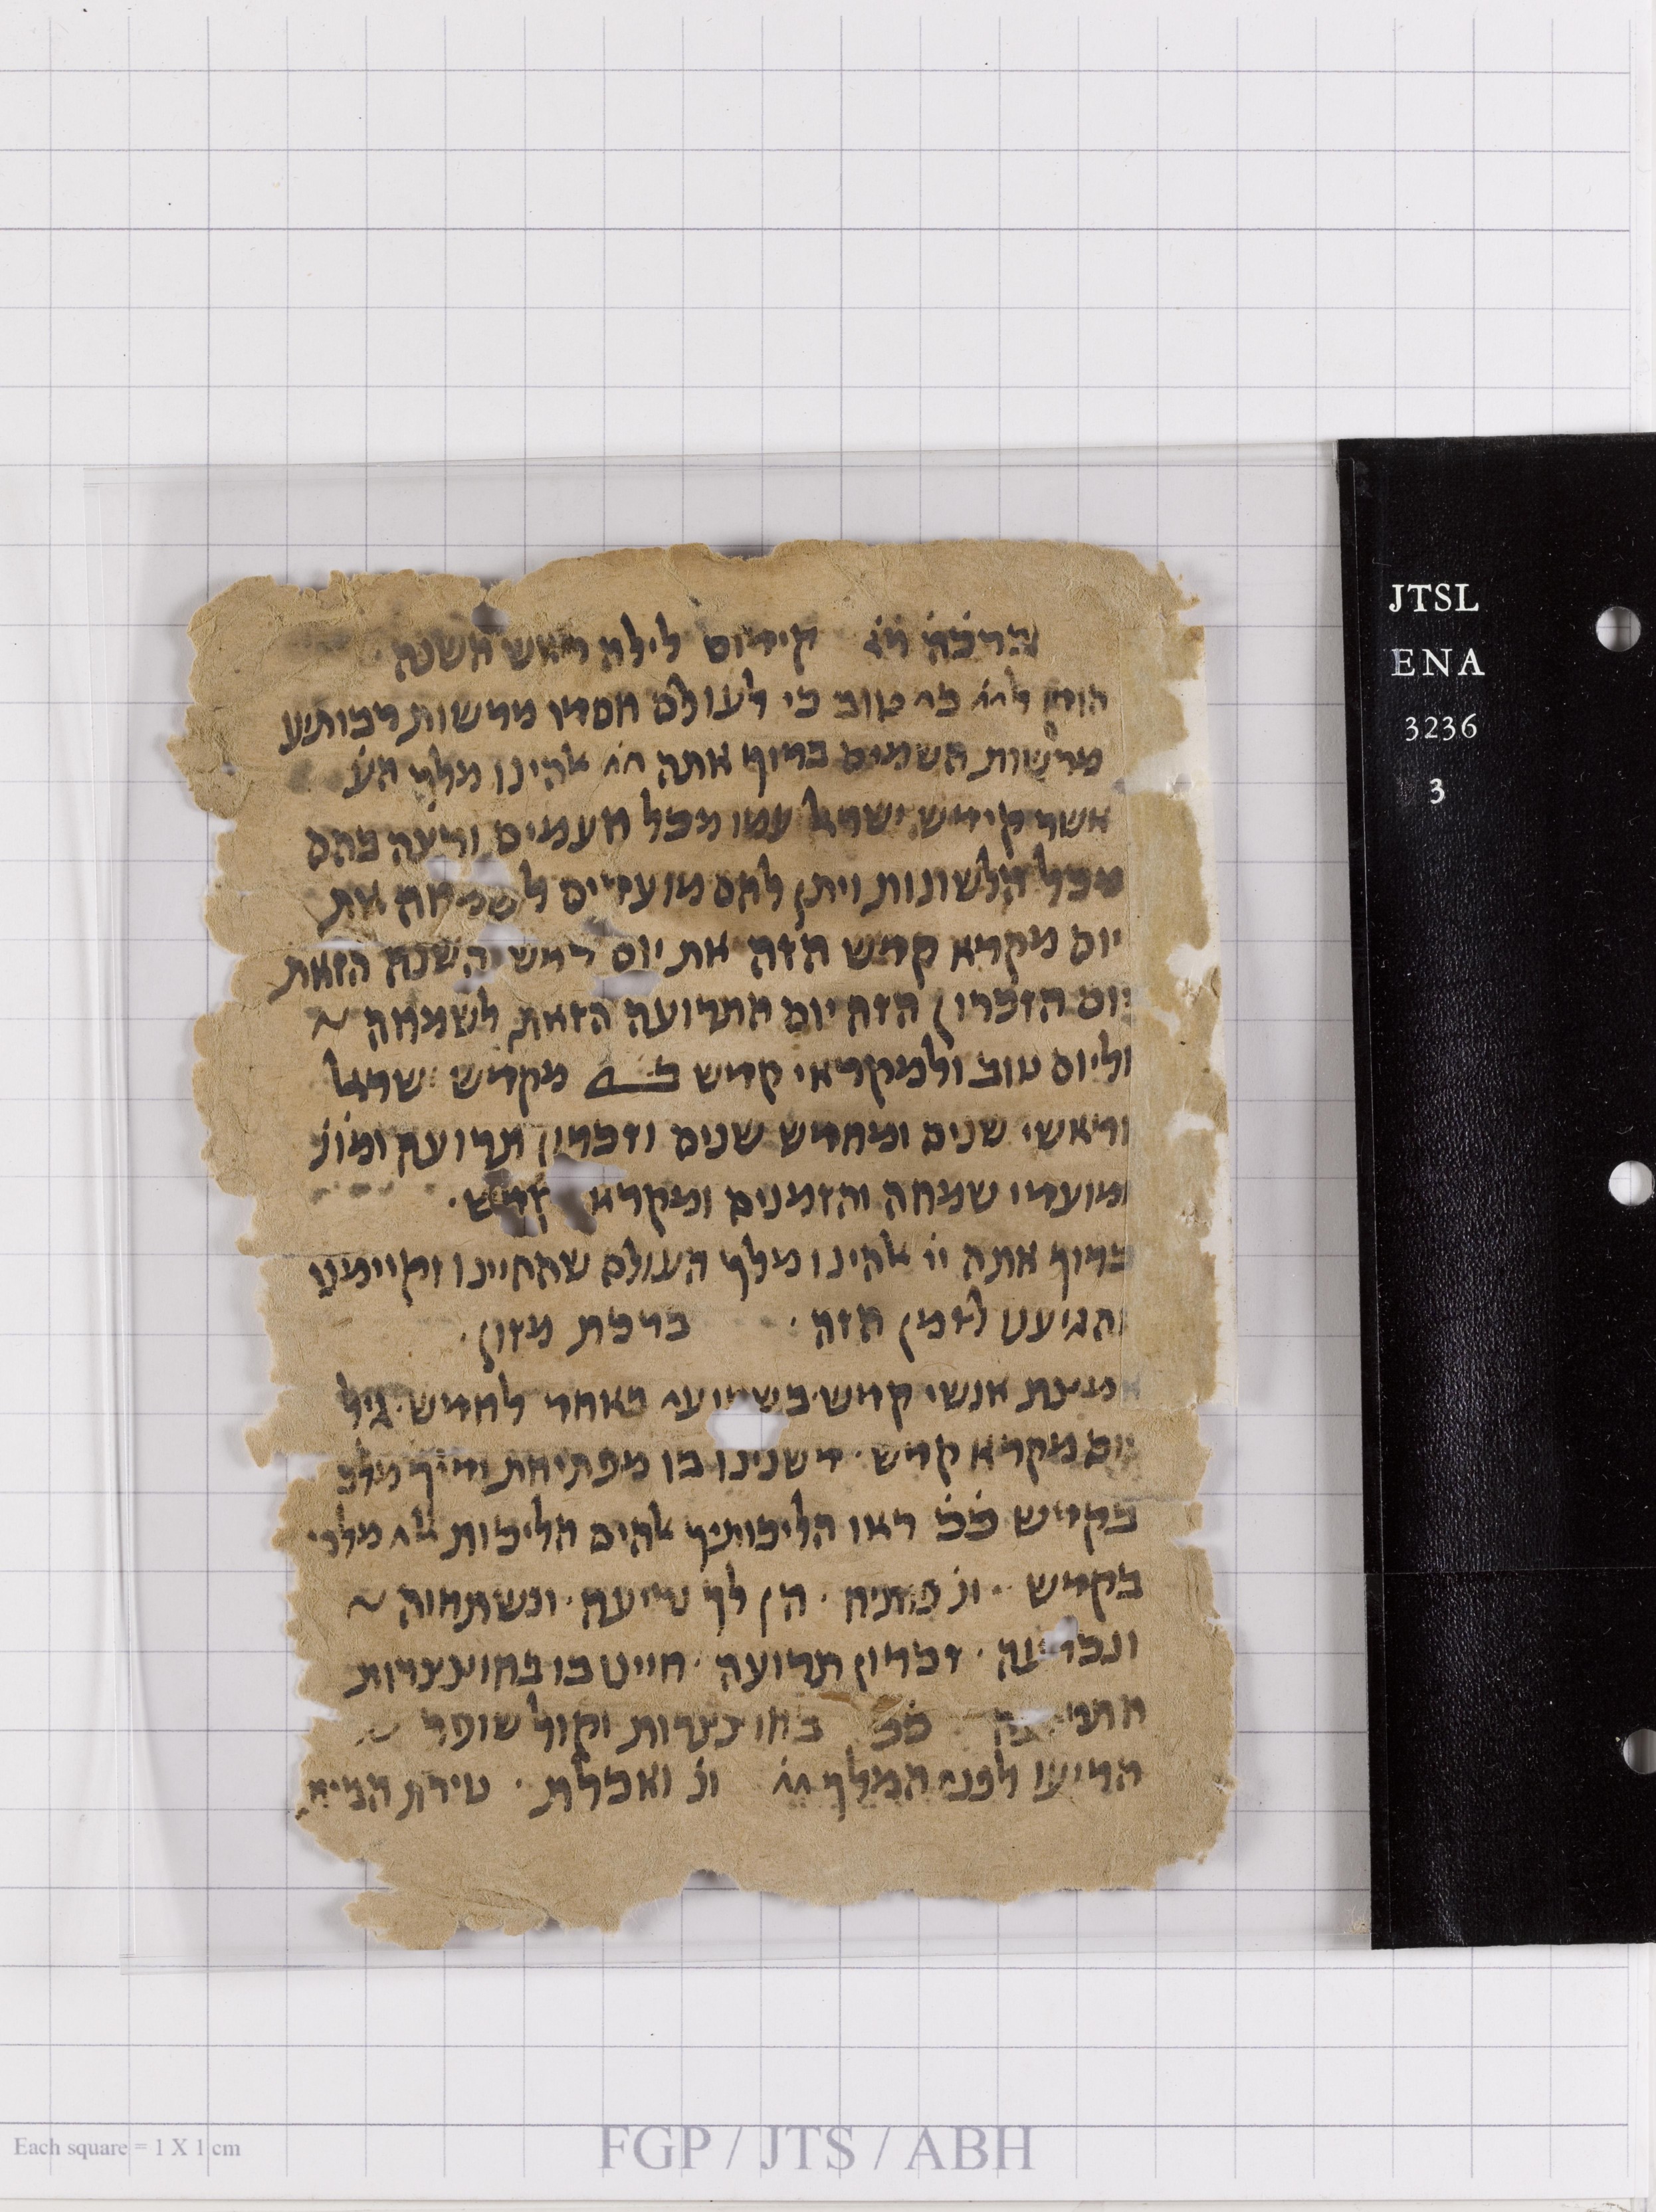 קידוש לילה ראש השנה
הודו לייי כי טוב כי לעולם חסדו מרשות רבותינו
מרשות השמים ברוך אתה ייי אלהינו מלך הע
אשר קידש ישראל עמו מכל העמים ורצה בהם
מכל הלשונות ויתן להם מועדים לשמחה את
יום מקרא קדש הזה את יום ראש השנה הזאת
יום הזכרון הזה יום התרועה הזאת לשמחה
וליום טוב ולמקראי קדש מקדש ישראל
וראשי שנים ומחדש שנים וזכרון תרועה
ומועדי שמחה והזמנים ומקרא קדש
ברוך אתה יי אלהינו מלך העולם שהחיינו וקיימנו
והגיענו לזמן הזה ברכת מזון
אנשי קדש בשביעי באחד לחדש גיל
יום מקרא קדש בו
בקדש ככ ראו הליכותיך אלהים הליכות אלי מלכי
בקדש הן לך ונשתחוה
ונכריעה זכרון תרועה בו בחוצצרות
ככ בחוצצרות וקול שופר
הריעו לפני המלך ייי ואכלת
JTSL
ENA
3236
3
Each square = 1 X 1 cm
FGP / JTS / ABH